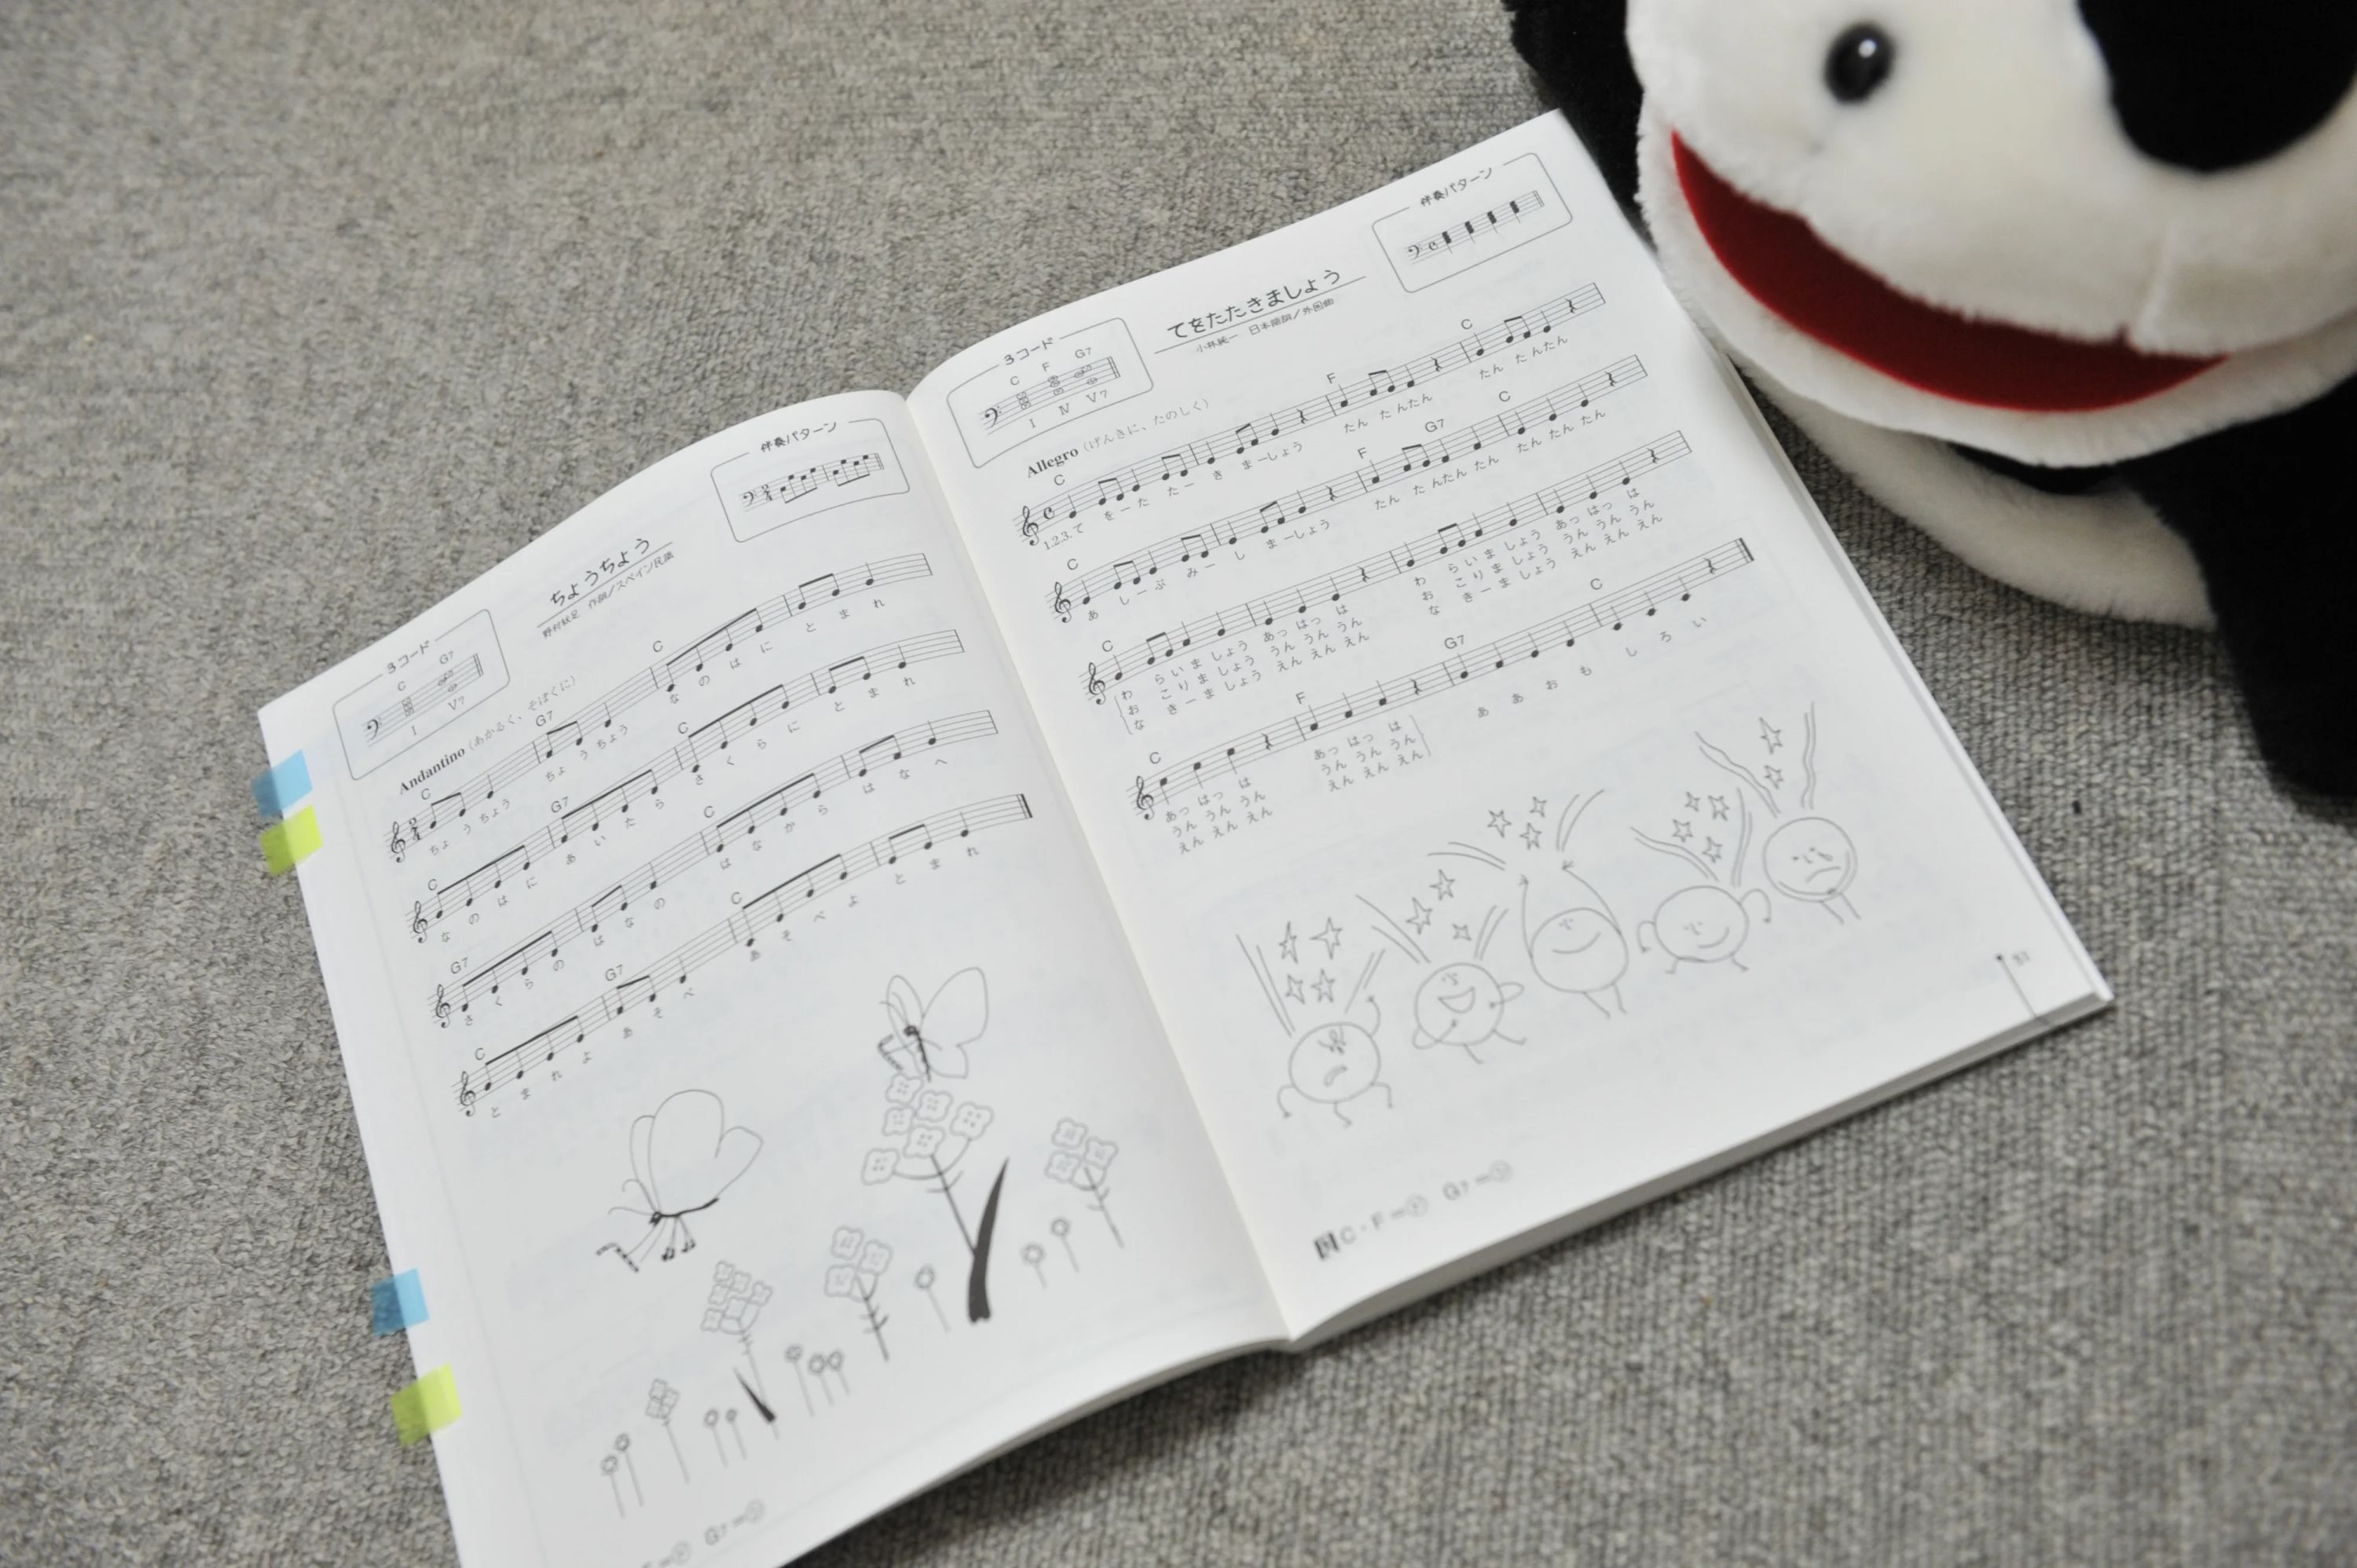 3コード
C G7
I V7
ちょうちょう
野村秋足 作詞／スペイン民謡
伴奏パターン
Andantino (あかるく、そぼくに)
C G7 C
ちょ う ちょう ちょ う ちょう な の は に と ま れ
C G7 C
な の は に あ い た ら さ く ら に と ま れ
G7 C
さ く ら の は な の は な か ら は な へ
C G7 C
と ま れ よ あ そ べ あ そ べ よ と ま れ
G7
3コード
C F G7
I IV V7
てをたたきましょう
小林純一 日本語詞／外国曲
伴奏パターン
Allegro (げんきに、たのしく)
C F C
1.2.3. て を ー た た ー き ま ーしょう たん た んたん たん た んたん
C F G7 C
あ し ー ぶ み ー し ま ーしょう たん た んたん たん たん たん たん
C
わ ら い ま しょう あっ はっ は わ ら い ま しょう あっ はっ は
お こ り ま しょう うん うん うん お こ り ま しょう うん うん うん
な き ー ま しょう えん えん えん な き ー ま しょう えん えん えん
C F G7 C
あっ はっ は あっ はっ は あ あ お も し ろ い
うん うん うん うん うん うん
えん えん えん えん えん えん
C・F G7